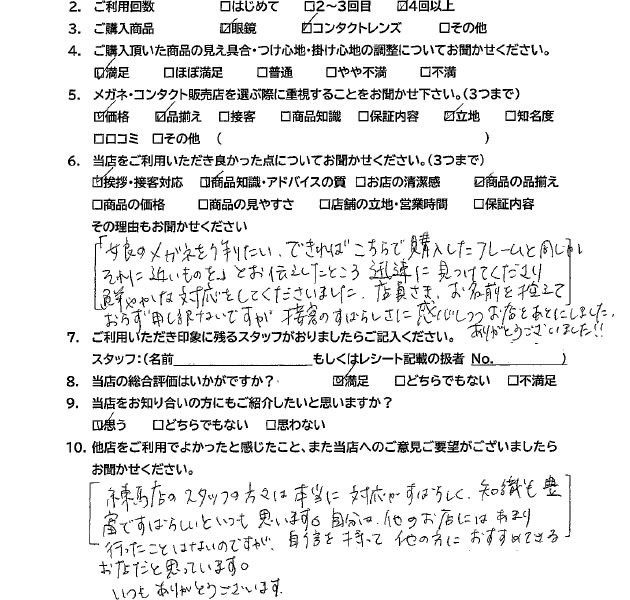 2. ご利用回数 □はじめて □2～3回目 ☑4回以上
3. ご購入商品 ☑眼鏡 ☑コンタクトレンズ □その他
4. ご購入頂いた商品の見え具合・つけ心地・掛け心地の調整についてお聞かせください。
☑満足 □ほぼ満足 □普通 □やや不満 □不満
5. メガネ・コンタクト販売店を選ぶ際に重視することをお聞かせ下さい。(3つまで)
☑価格 ☑品揃え □接客 □商品知識 □保証内容 ☑立地 □知名度
□口コミ □その他 ( )
6. 当店をご利用いただき良かった点についてお聞かせください。(3つまで)
☑挨拶・接客対応 ☑商品知識・アドバイスの質 □お店の清潔感 ☑商品の品揃え
□商品の価格 □商品の見やすさ □店舗の立地・営業時間 □保証内容
その理由もお聞かせください
「女良のメガネを予約したい、できればこちらで購入したフレームと同じか
それに近いものを」とお伝えしたところ 迅速に見つけてくださり
鮮やかな対応をしてくださいました。店員さま、お名前を控えて
おらず申し訳ないですが 接客のすばらしさに感心しつつお店をあとにしました。
ありがとうございました!!
7. ご利用いただき印象に残るスタッフがおりましたらご記入ください。
スタッフ:(名前 もしくはレシート記載の扱者 No. )
8. 当店の総合評価はいかがですか? ☑満足 □どちらでもない □不満足
9. 当店をお知り合いの方にもご紹介したいと思いますか?
☑思う □どちらでもない □思わない
10. 他店をご利用でよかったと感じたこと、また当店へのご意見ご要望がございましたら
お聞かせください。
練馬店のスタッフの方々は本当に対応がすばらしく、知識も豊
富ですばらしいといつも思います。自分は、他のお店にはあまり
行ったことはないのですが、自信を持って他の方におすすめできる
お店だと思っています。
いつもありがとうございます。